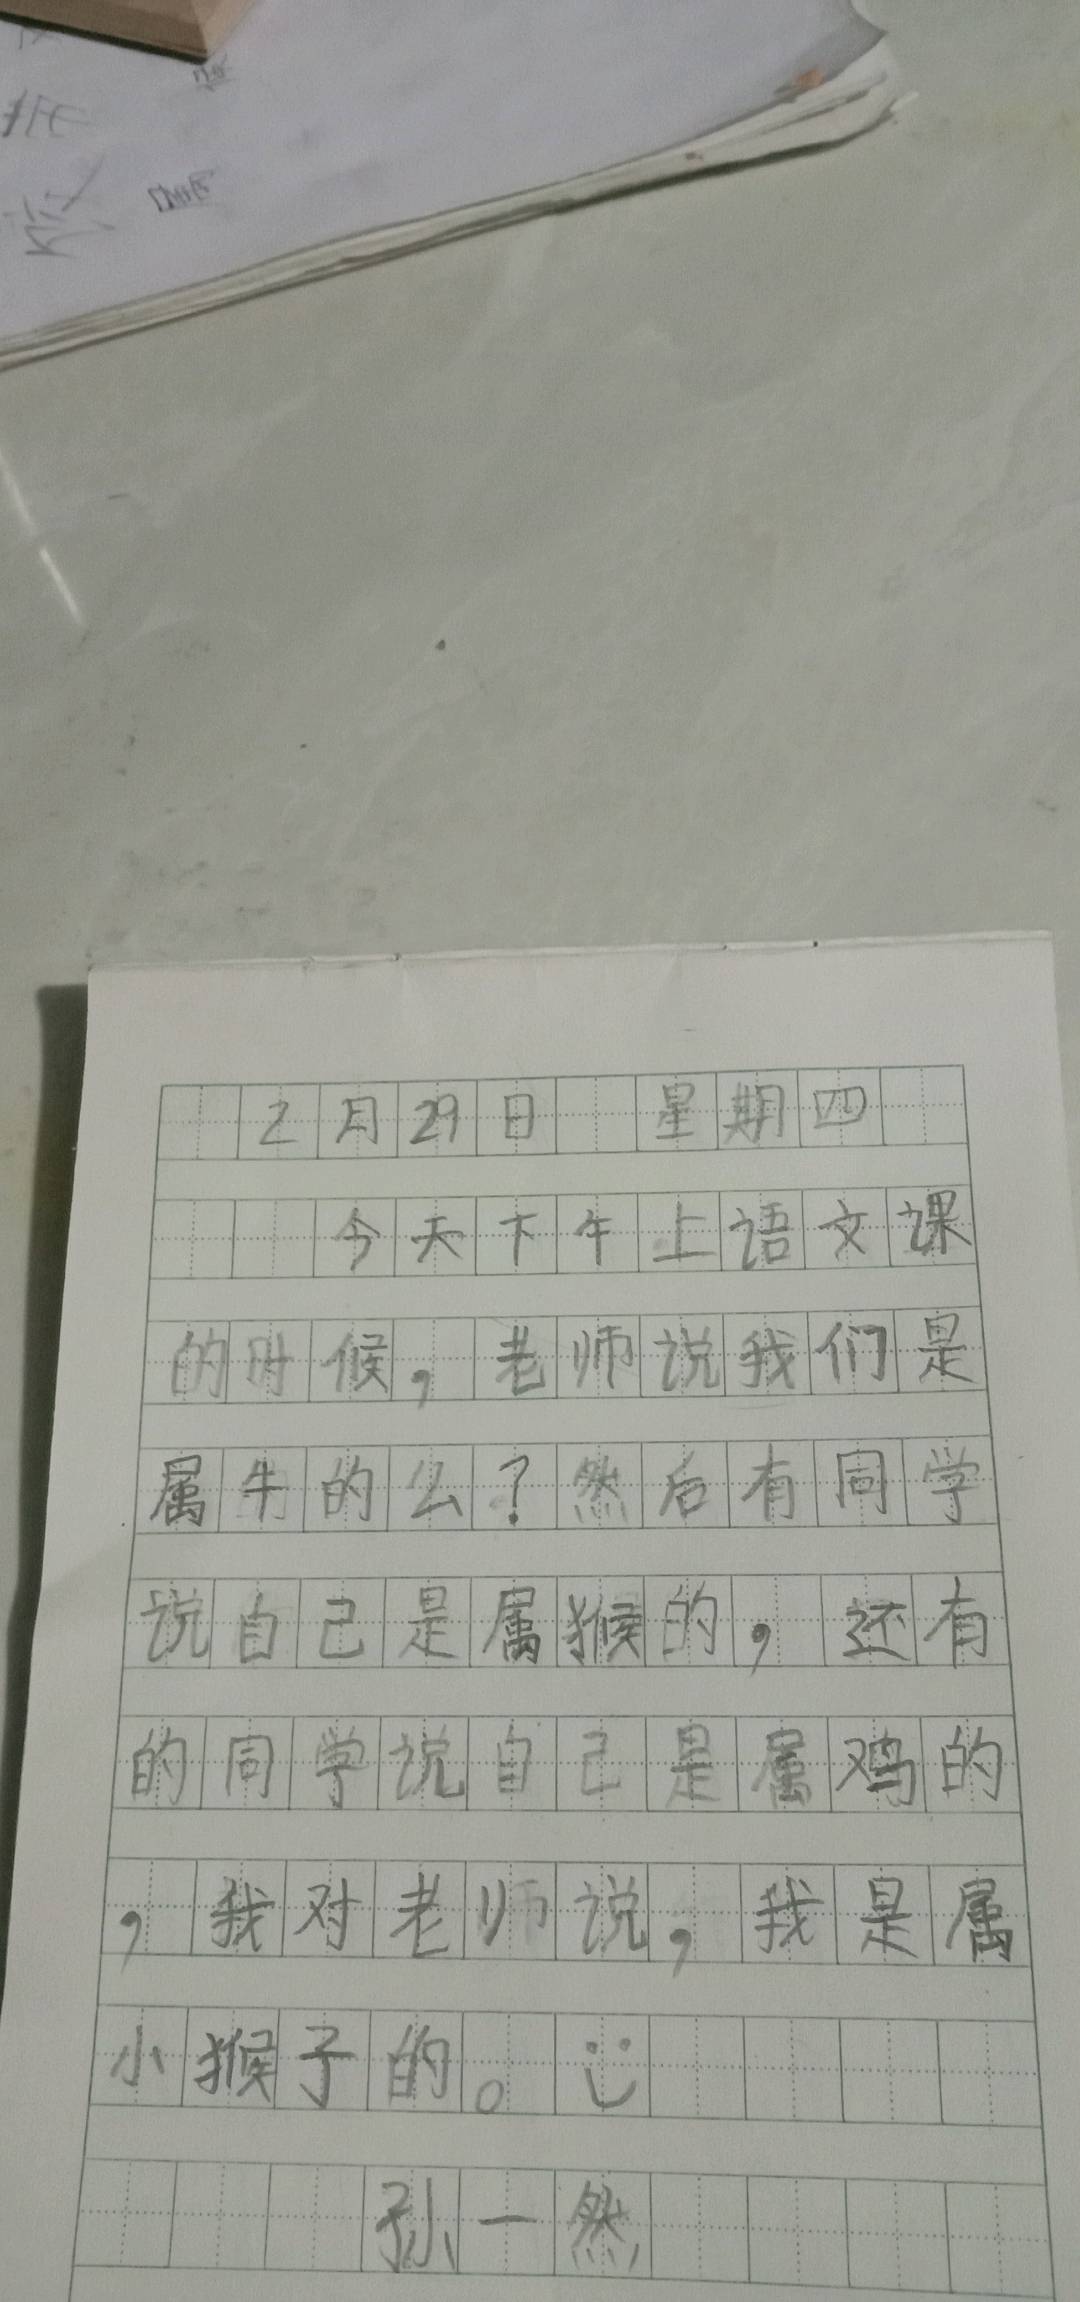 2月29日 星期四
今天下午上语文课
的时候，老师说我们是
属牛的么？然后有同学
说自己是属猴的，还有
的同学说自己是属鸡的
，我对老师说，我是属
小猴子的。
孙一然